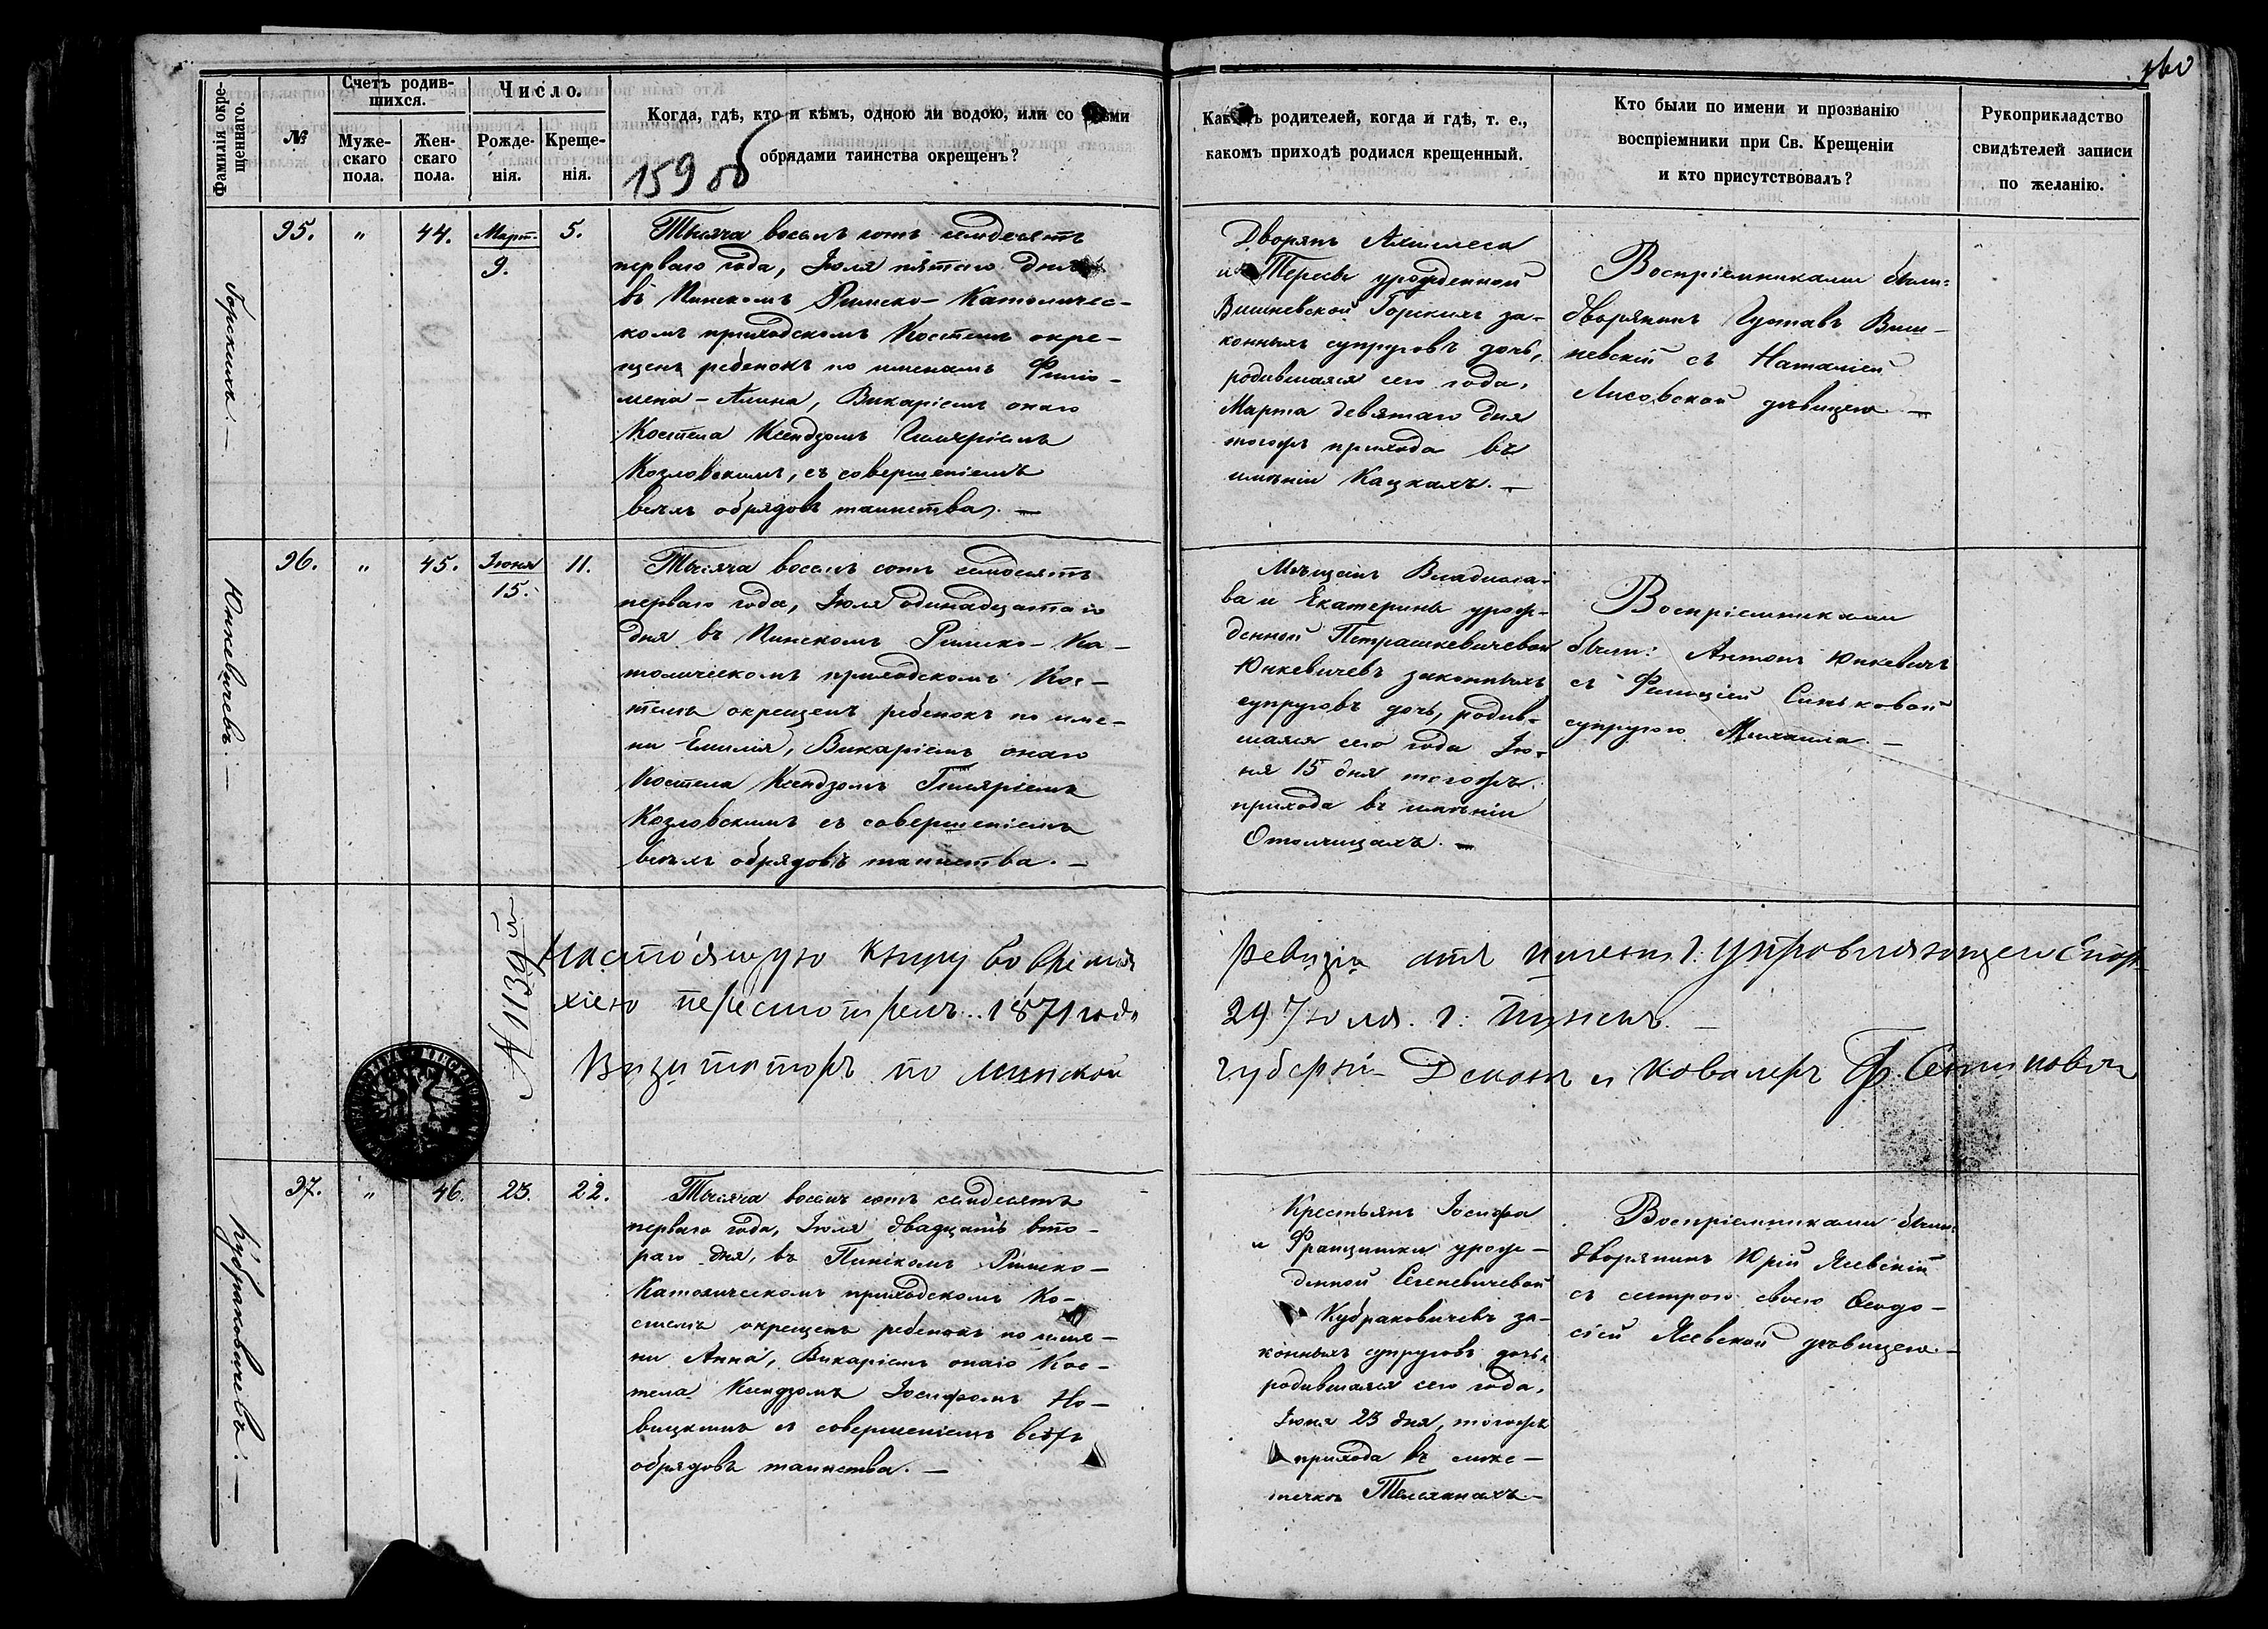 160
Фамилія окре-
щеннаго.
№
Счетъ родив-
шихся.
Муже-
скаго
пола.
Жен-
скаго
пола.
Число.
Рожде-
нія.
Креще-
нія.
Когда, гдѣ, кто и кѣмъ, одною ли водою, или со всѣми
обрядами таинства окрещенъ?
159 об
Какихъ родителей, когда и гдѣ, т. е.,
какомъ приходѣ родился крещенный.
Кто были по имени и прозванію
воспріемники при Св. Крещеніи
и кто присутствовалъ?
Рукоприкладство
свидѣтелей записи
по желанію.
Горскихъ. —
95.
"
44.
Март.
9.
5.
Тысяча восемь сотъ семдесятъ
перваго года, Іюля пятаго дня
въ Пинскомъ Римско-Католичес-
комъ приходскомъ Костелѣ окре-
щенъ ребенокъ по именамъ Фило-
мена-Алина, Викаріемъ онаго
Костела Ксендзомъ Гиляріемъ
Козловскимъ, съ совершеніемъ
всѣхъ обрядовъ таинства. —
Дворянъ Ахиллеса
и Тересы урожденной
Вишневской Горскихъ за-
конныхъ супруговъ дочь,
родившаяся сего года,
Марта девятаго дня
тогожъ прихода въ
имѣніи Кацкахъ. —
Воспріемниками были:
дворянинъ Густавъ Виш-
невскій съ Наталіей
Лисовской дѣвицею. —
Юнкевичевъ. —
96.
"
45.
Іюня
15.
11.
Тысяча восемь сотъ семдесятъ
перваго года, Іюля одинадцатаго
дня въ Пинскомъ Римско-Ка-
толическомъ приходскомъ Кос-
телѣ окрещенъ ребенокъ по име-
ни Емилія, Викаріемъ онаго
Костела Ксендзомъ Гиляріемъ
Козловскимъ съ совершеніемъ
всѣхъ обрядовъ таинства. —
Мѣщанъ Владисла-
ва и Екатерины урож-
денной Петрашкевичевой
Юнкевичевъ законныхъ
супруговъ дочь, родив-
шаяся сего года Ію-
ня 15 дня тогожъ
прихода въ имѣніи
Отолчицахъ. —
Воспріемниками
были: Антонъ Юнкевичъ
съ Фелиціей Синьковой
супругою Михаила. —
Настоящую книгу во время ревизіи отъ имени г. Управляющего Епар-
хіею пересмотрелъ. 1871 года 29 Іюля. г. Пинскъ. —
Визитаторъ по Минской губерніи Деканъ и Кавалеръ Ф.
Кубраковичевъ. —
97.
"
46.
23.
22.
Тысяча восемь сотъ семдесятъ
перваго года, Іюля двадцать вто-
раго дня, въ Пинскомъ Римско-
Католическомъ приходскомъ Ко-
стелѣ окрещенъ ребенокъ по име-
ни Анна, Викаріемъ онаго Кос-
тела Ксендзомъ Іосифомъ Но-
вицкимъ съ совершеніемъ всѣхъ
обрядовъ таинства. —
Крестьянъ Іосифа
и Францишки урож-
денной Сегеневичевой
Кубраковичевъ за-
конныхъ супруговъ дочь,
родившаяся сего года,
Іюня 23 дня, тогожъ
прихода въ мѣс-
течкѣ Телеханахъ. —
Воспріемниками были:
дворянинъ Юрій Ясевскій
съ сестрою своею Ѳеодо-
сіей Ясевской дѣвицею. —